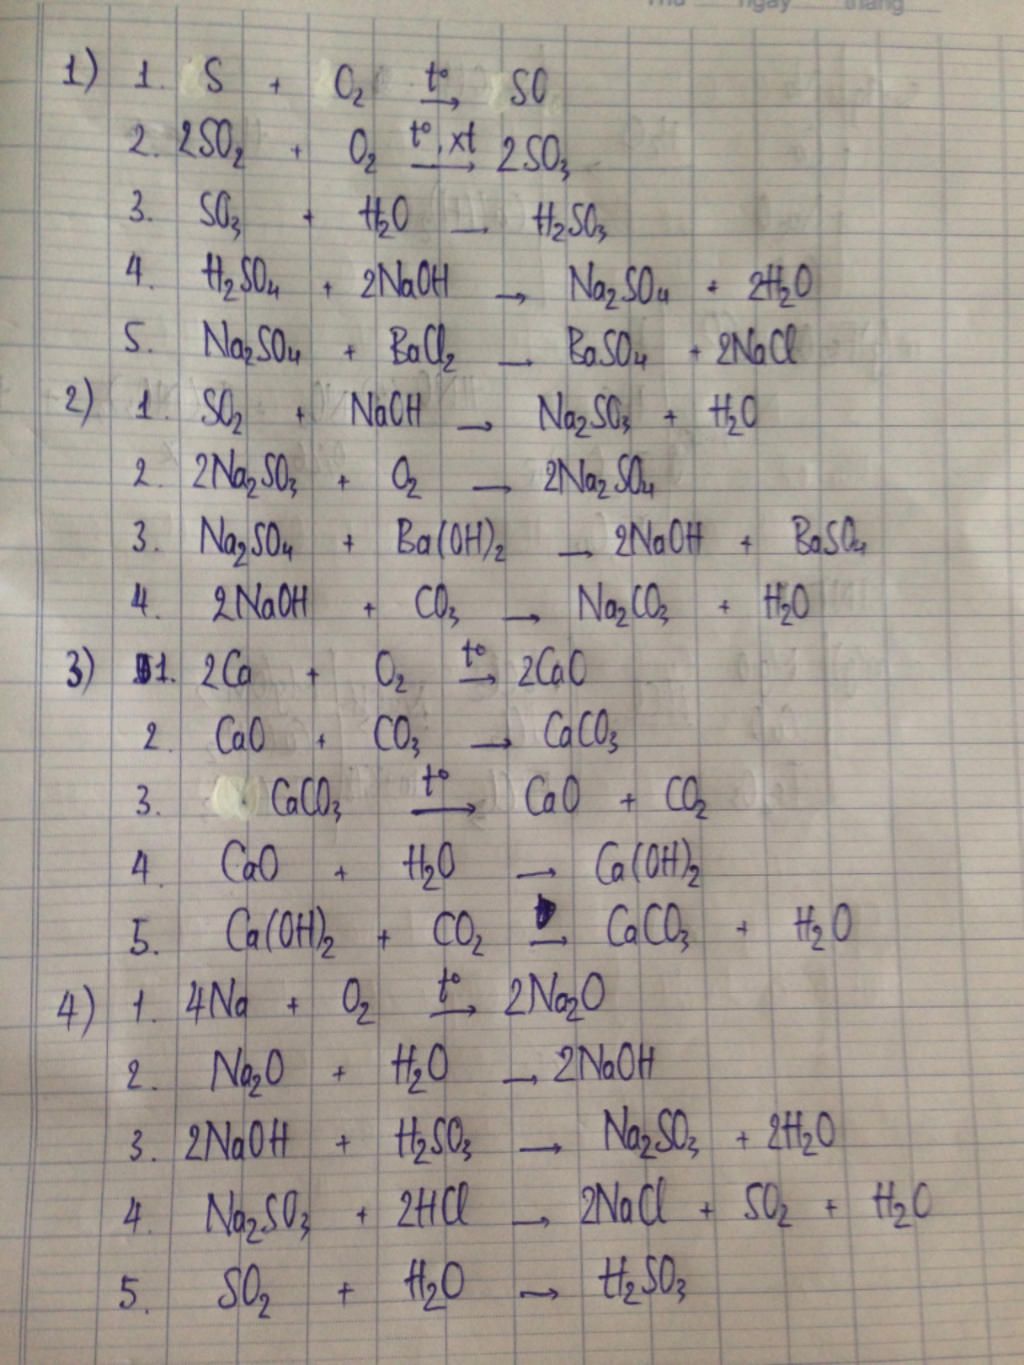 Thứ ngày tháng
1) 1. S + O₂ t° → SO
2. 2SO₂ + O₂ t°, xt → 2SO₃
3. SO₃ + H₂O → H₂SO₃
4. H₂SO₄ + 2NaOH → Na₂SO₄ + 2H₂O
5. Na₂SO₄ + BaCl₂ → BaSO₄ + 2NaCl
2) 1. SO₂ + NaOH → Na₂SO₃ + H₂O
2. 2Na₂SO₃ + O₂ → 2Na₂SO₄
3. Na₂SO₄ + Ba(OH)₂ → 2NaOH + BaSO₄
4. 2NaOH + CO₃ → Na₂CO₃ + H₂O
3) 1. 2Ca + O₂ t° → 2CaO
2. CaO + CO₃ → CaCO₃
3. CaCO₃ t° → CaO + CO₂
4. CaO + H₂O → Ca(OH)₂
5. Ca(OH)₂ + CO₂ → CaCO₃ + H₂O
4) 1. 4Na + O₂ t° → 2Na₂O
2. Na₂O + H₂O → 2NaOH
3. 2NaOH + H₂SO₃ → Na₂SO₃ + 2H₂O
4. Na₂SO₃ + 2HCl → 2NaCl + SO₂ + H₂O
5. SO₂ + H₂O → H₂SO₃